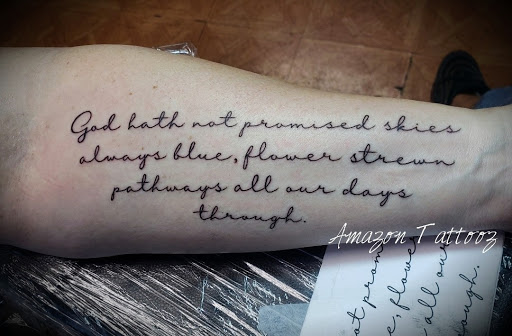 God hath not promised skies
always blue, flower strewn
pathways all our days
through.
Amazon Tattooz
ot prom
e, flowe
all our
ough.